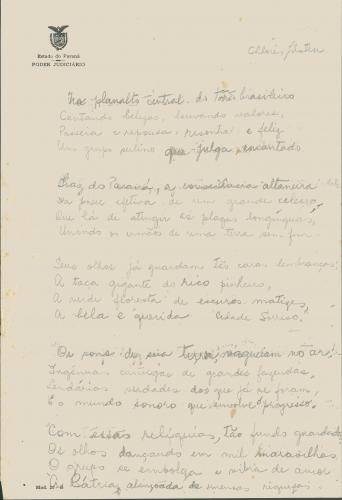 Estado do Paraná
PODER JUDICIÁRIO
No planalto central do Torrão brasileiro
Cantando belezas, louvando valores,
Passeia e repousa, risonho e feliz
Um grupo que julga encantado
Traz do Paraná, a consciência altaneira
Da prece efetiva de um grande celeiro
Que há de atingir as plagas longínquas,
Unindo os irmãos de uma terra sem fim.
Seus olhos já guardam tão caras lembranças:
A taça gigante do rico pinheiro,
A verde floresta de escuros matizes,
A bela e querida Cidade Sorriso.
Os sons de sua terra, no ar:
Ingênuas cantigas de grandes fazendas,
Lendárias verdades dos que já se foram,
E o mundo sonoro que envolve o progresso.
Com essas relíquias, tão fundo guardadas
Os olhos dançando em mil maravilhas
O grupo se empolga e vibra de amor
À Pátria, de imensas riquezas.